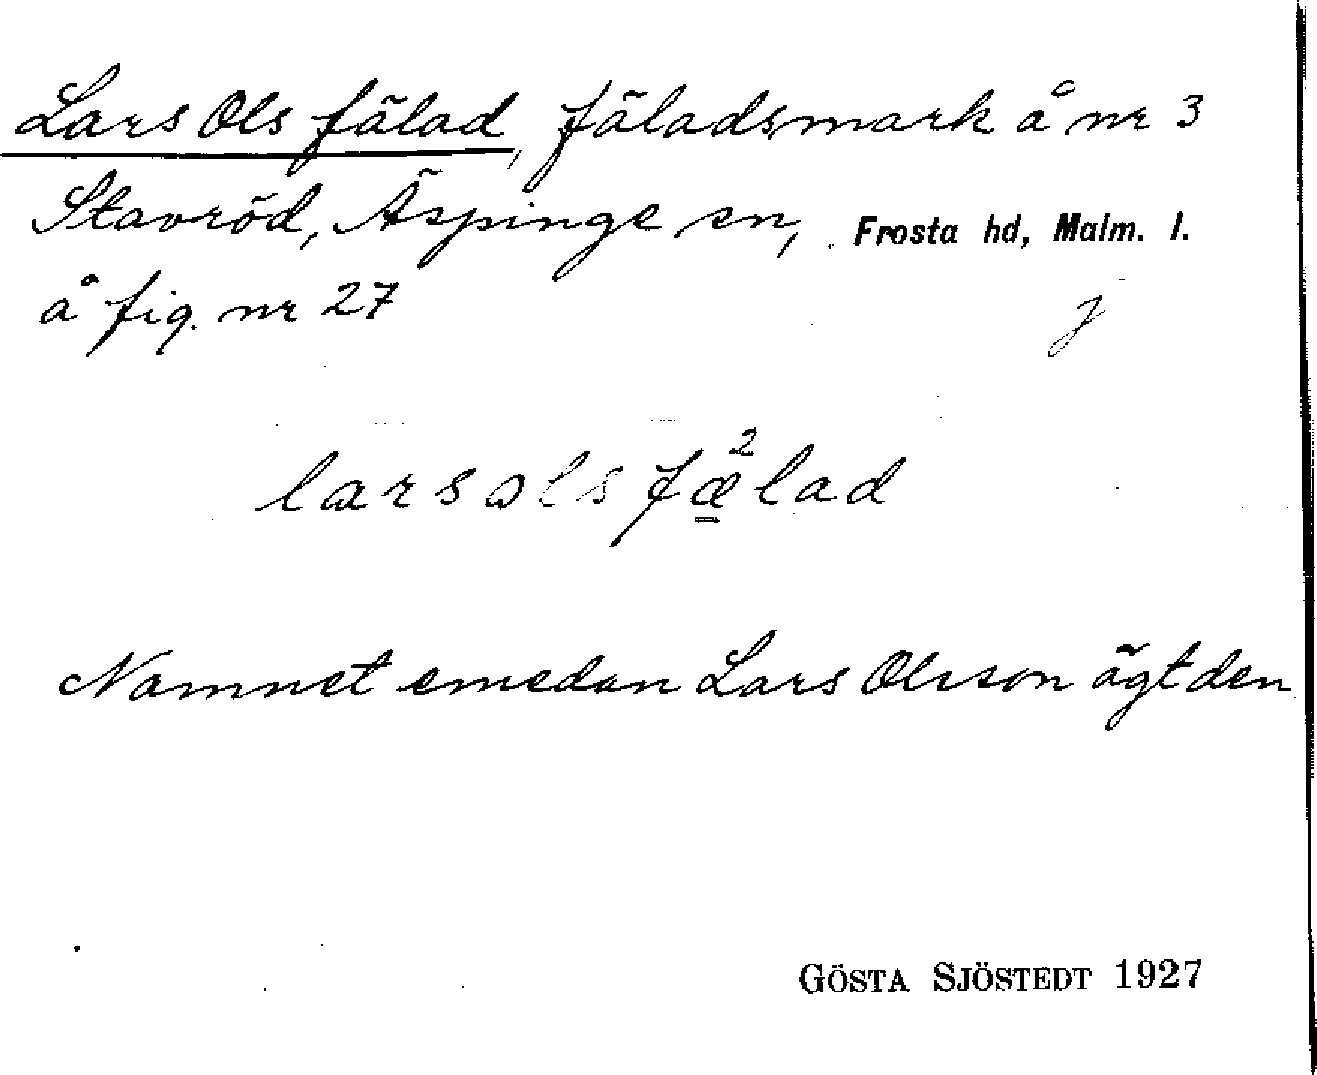 Lars Ols fälad, fäladsmark å nr 3
Stavröd, Äspinge sn, Frosta hd, Malm. l.
å fig. nr 27 j
lars ols fæ̲²lad
Namnet emedan Lars Olsson ägt den
GÖSTA SJÖSTEDT 1927